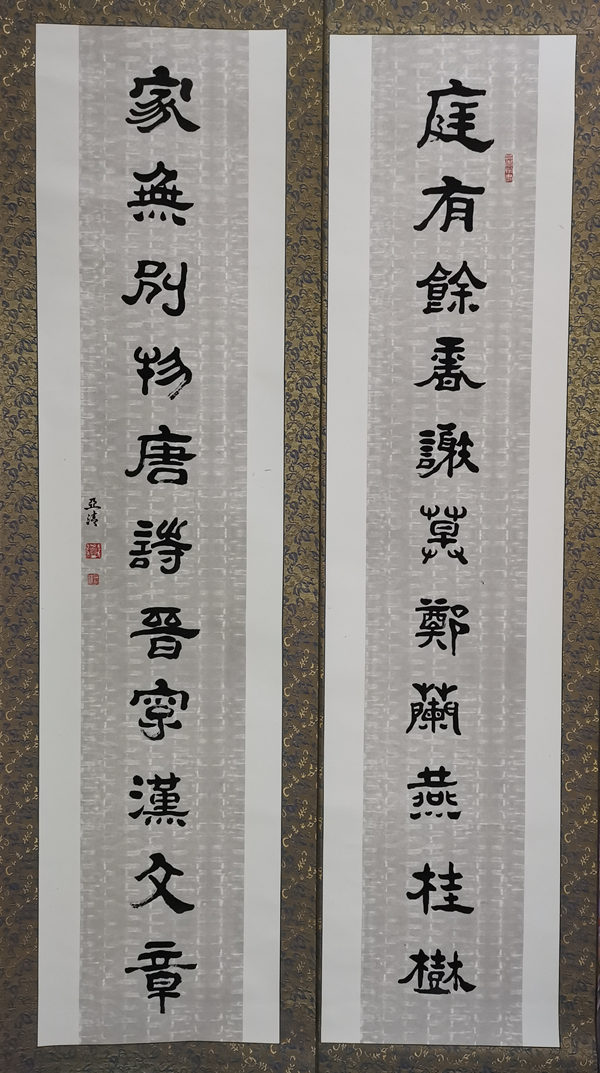 庭有餘香謝草鄭蘭燕桂樹
家無別物唐詩晉字漢文章
亞清